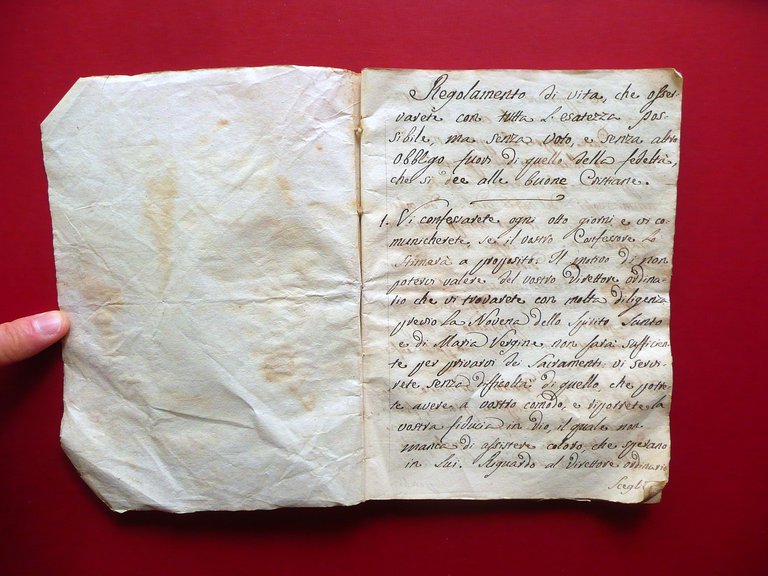 Regolamento di vita, che osser-
varete con tutta l'esatezza pos-
sibile, ma senza voto, e senza altro
obbligo fuori di quello della fedeltà,
che si dee alle buone Cristiane.
1. Vi confessarete ogni otto giorni e vi co-
municherete, se il vostro Confessore lo
stimerà a proposito. Il motivo di non
potervi valere del vostro Direttore ordina-
rio che vi trovarete con molta diligenza
previo la Novena dello Spirito Santo
e di Maria Vergine non sarà sufficien-
te per privarvi dei Sacramenti. vi servi-
rete senza difficoltà di quello, che potre-
te avere a vostro comodo, e riporrete la
vostra fiducia in Dio, il quale non
manca di assistere coloro, che sperano
in Lui. Riguardo al Direttore ordinario
Scegli